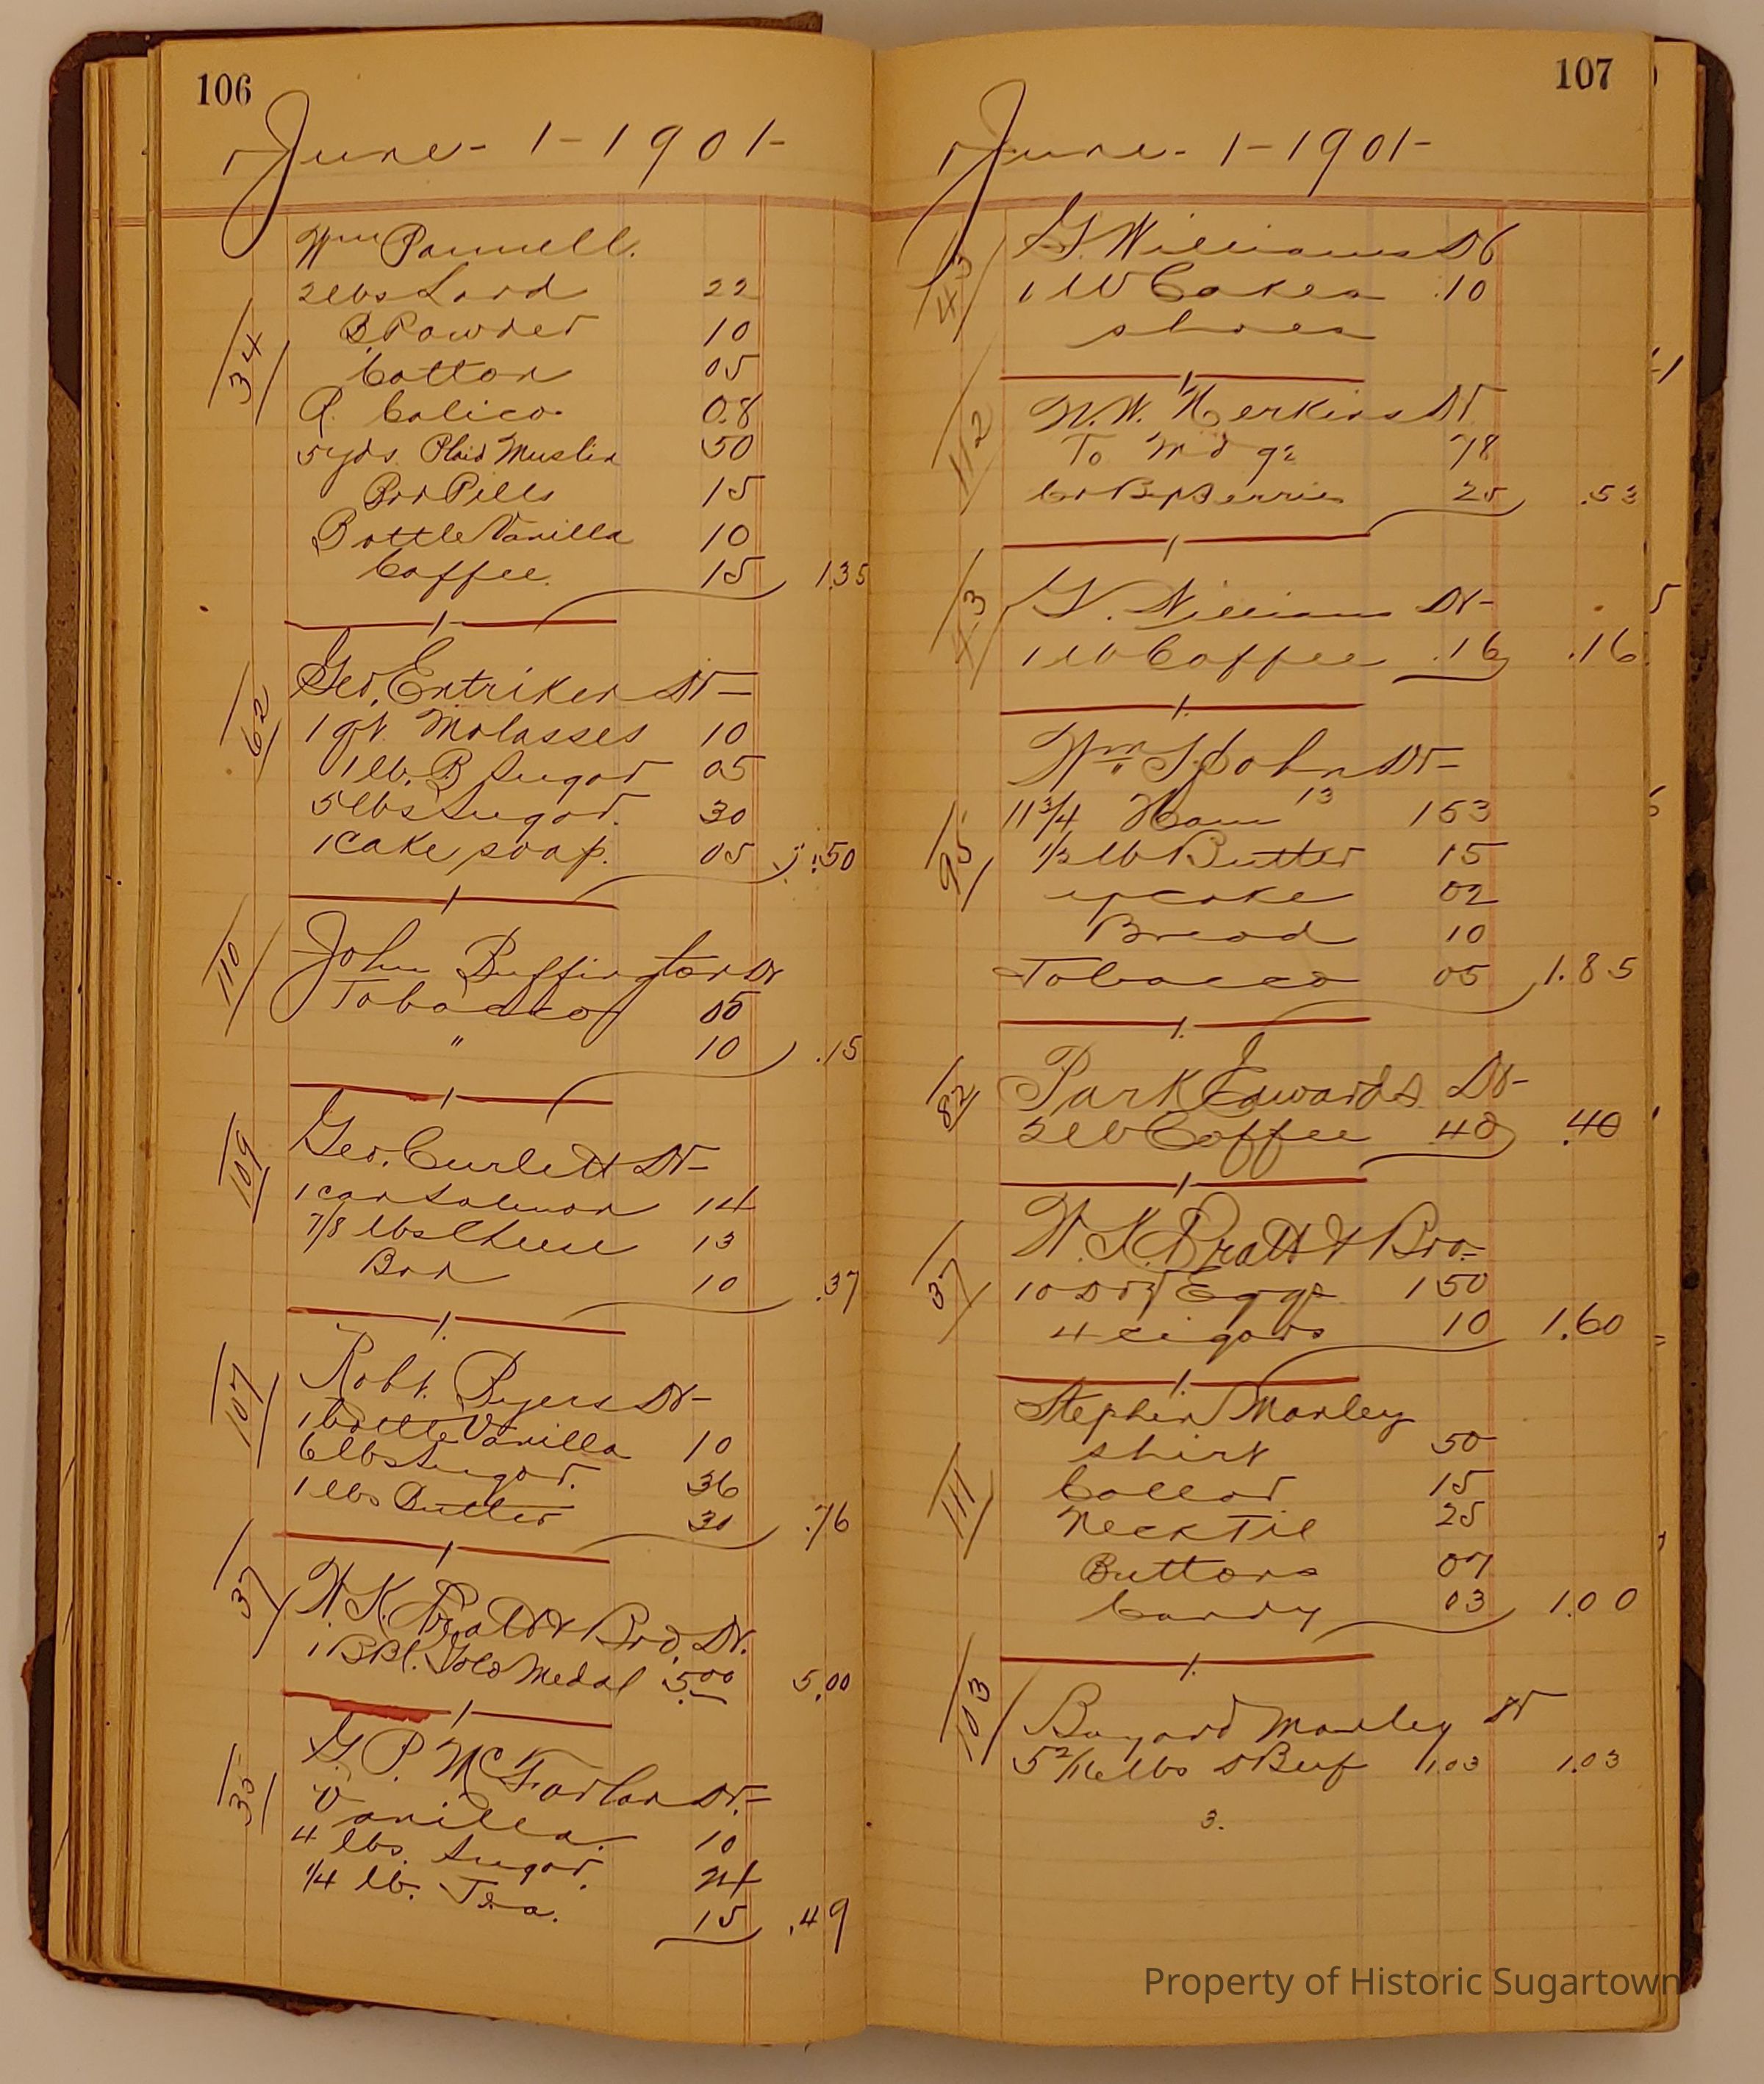 106
June - 1 - 1901 -
Wm Pannell.
2 lbs Lard 22
34
B. Powder 10
Cotton 05
P. Calico 08
5 yds. Plaid Muslin 50
Box Pills 15
Bottle Vanilla 10
Coffee. 15 1.35
1
62
Geo. Entriken Dr -
1 qt. Molasses 10
1 lb. B Sugar 05
5 lbs Sugar. 30
1 Cake soap. 05 .50
1
110
John Buffington Dr
Tobacco 05
" 10 .15
1
109
Geo. Curlett Dr -
1 can Salmon 14
7/8 lbs Cheese 13
10 .37
1.
107
Robt. Byers Dr -
1 Bottle Vanilla 10
6 lbs Sugar. 36
1 lbs Butter 30 .76
1
37
W. K. Pratt & Bro. Dr.
1 BBl. Gold Medal 5.00 5.00
1
35
G. P. McFarlan Dr. -
Vanilla. 10
4 lbs. Sugar. 24
1/4 lb. Tea. 15 .49
107
June - 1 - 1901 -
43
G. Williams Dr
1 lb Cakes .10
shoes
1
112
W. W. Herkins Dr
To Mdge 78
Cr By Berries 25 .53
1
43
G. Williams Dr -
1 lb Coffee .16 .16
1.
Wm S. John Dr -
95
11 3/4 Ham 13 153
1/2 lb Butter 15
yeake 02
Bread 10
Tobacco 05 1.85
1.
82
Park Edwards Dr -
2 lb Coffee 40 .40
1
37
W. K. Pratt & Bro. -
10 Doz Eggs 150
4 cigars 10 1.60
1.
111
Stephen Marley
shirt 50
Collar 15
Necktie 25
Buttons 07
Candy 03 1.00
1.
103
Bayard Marley Dr
5 2/16 lbs D Beef 1.03 1.03
3.
Property of Historic Sugartown